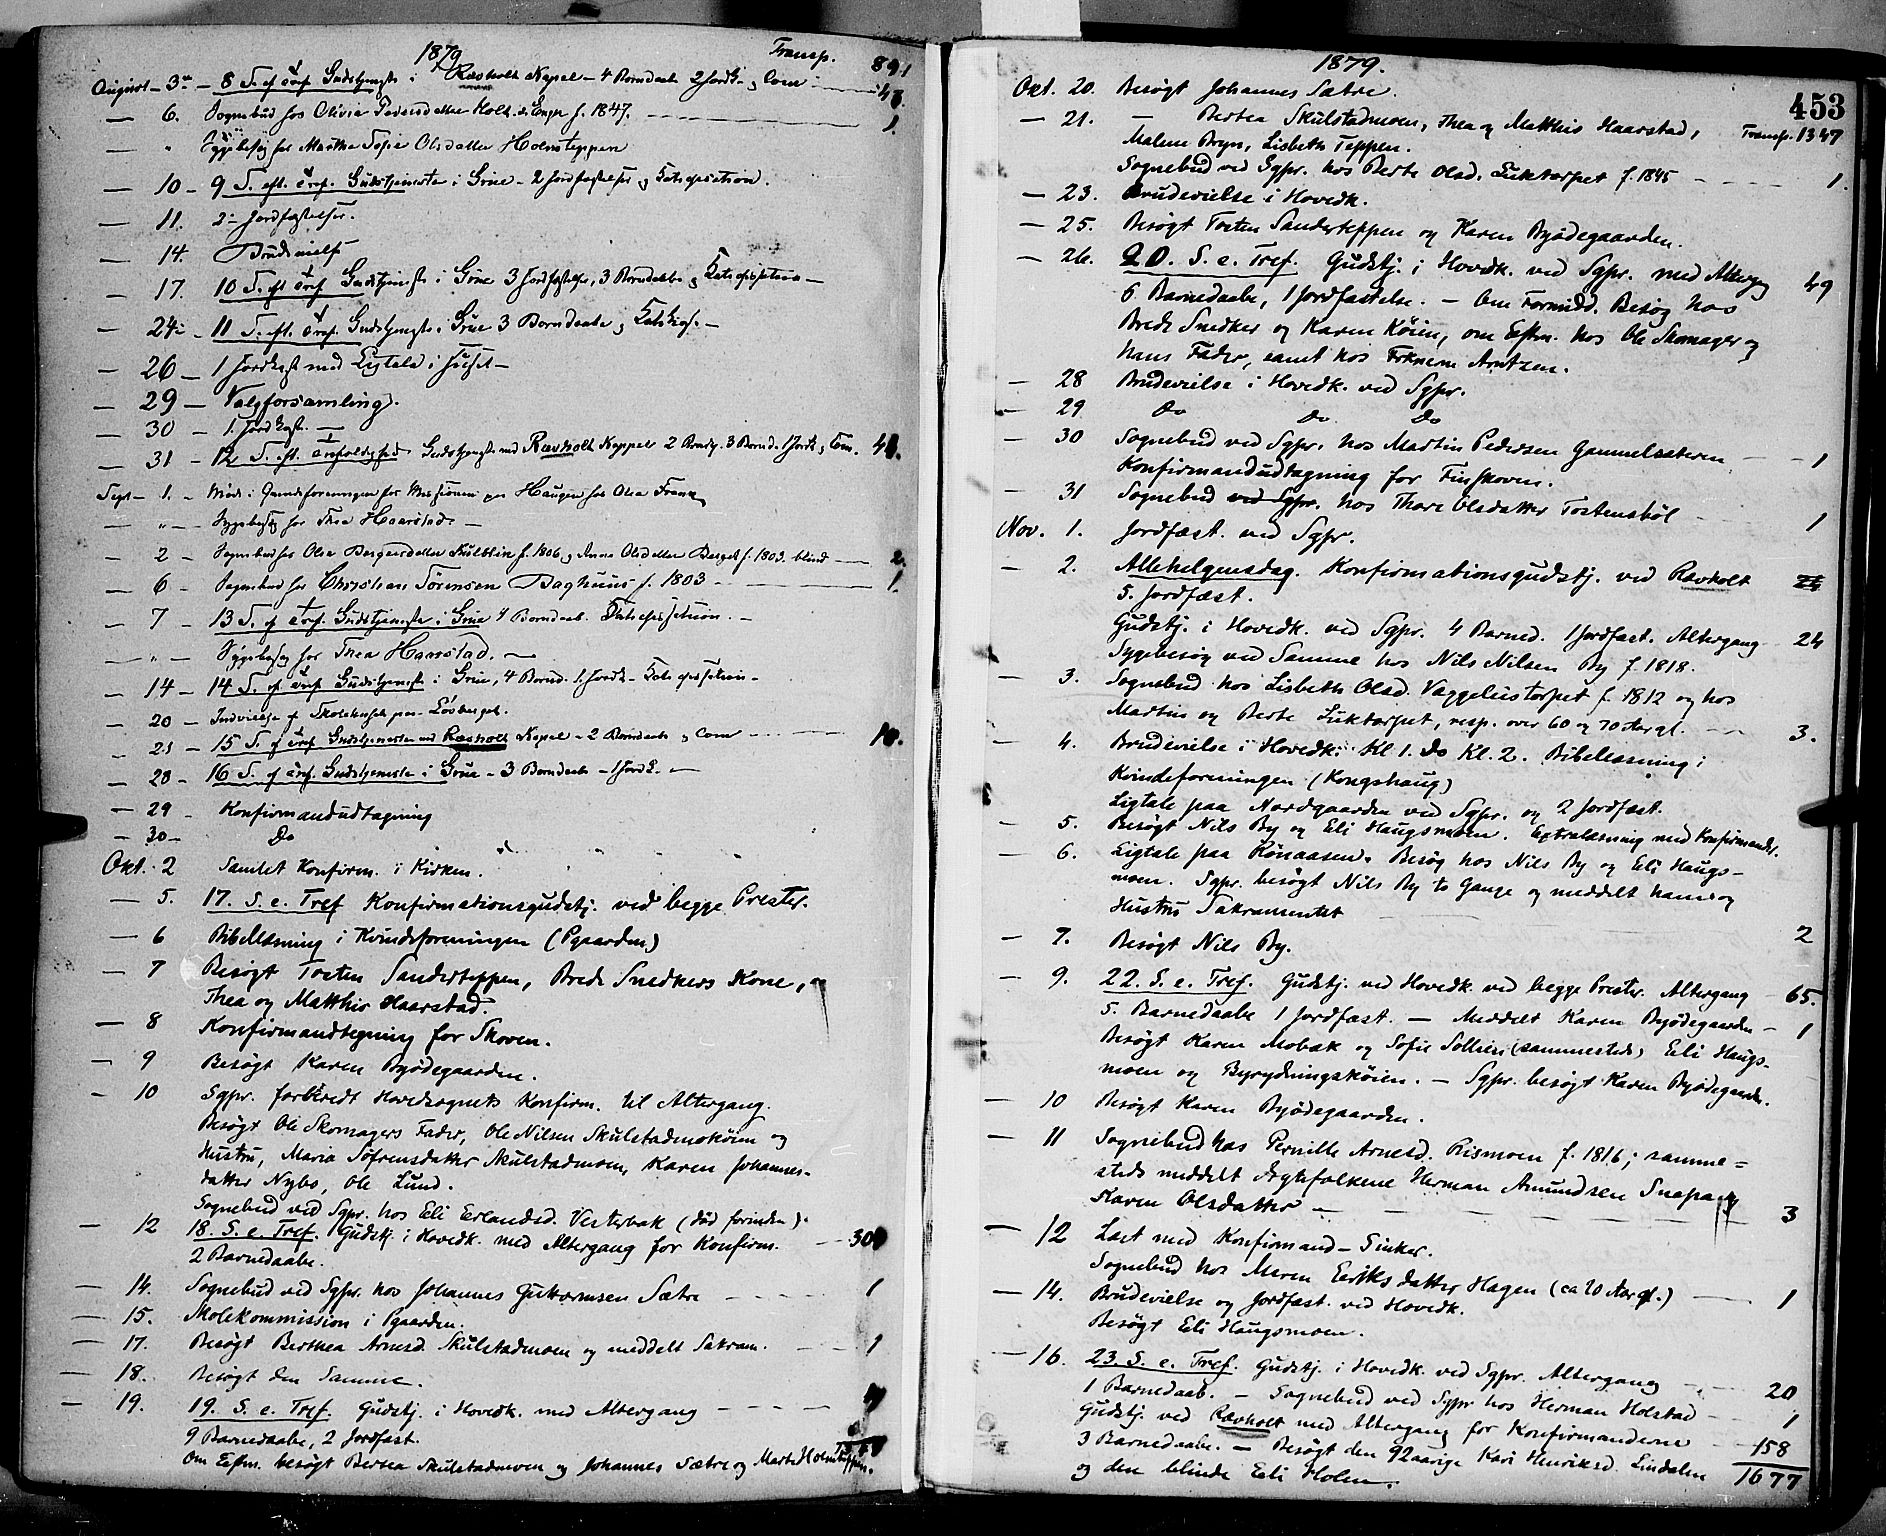 1879 Transp. 891
August - 3die - 8 S. ef Tref. Gudstjeneste i Revholt Kapel - 4 Barndaabe 2 Jordf.
— 6. Sognebud hos Olivia Pedersdatter Holt f. 1847. 1.
— " Sygebesøg hos Martha Sofie Olsdatter Holmsteppen
— 10 - 9 S. eft. Tref. Gudstjeneste i Grue - 2 Jordfæstelser og Katekisation.
— 11. 2 Jordfæstelser.
— 14. Brudevielse
— 17. 10 S. eft Tref Gudstjeneste i Grue 3 Jordfæstelser, 3 Barndaabe
— 24 - 11 S. eft. Tref. Gudstjeneste i Grue 3 Barndaabe
— 26 - 1 Jordfæst med Ligtale i Huset -
— 29 - Valgforsamling.
— 30 - 1. Jordfæst. —
— 31 - 12 S. eft. Trefoldighed Gudstjeneste ved Revholt Kappel 2 3 Barnd. 1 Jordf.
Sept - 1. - Møde i for Missionen paa Haugen hos Olea Frank
— " — Sygebesøg hos Thea Haarstad -
— 2 - Sognebud hos Olea f. 1806, og Anne Olsdatter Berget f. 1803. blind — 2.
— 6 - Sognebud hos Christian Sørensen Baghuus f. 1803 — 1.
— 7 - 13 S. ef Tref. Gudstjeneste i Grue 4 Barndaab. Katekisation. -
— " — Sygebesøg hos Thea Haarstad. —
— 14 - 14 S. ef Tref Gudstjeneste i Grue, 4 Barnd. 1 Jordf - Katekisation -
— 20 - Indvielse af Skolehuset paa Løvberget.
— 21 - 15 S. ef Tref Gudstjeneste ved Revholt Kapel - 2 Barndaab
— 28 - 16 S. ef Tref. Gudstjeneste i Grue - 3 Barndaab - 1 Jordf. —
— 29 - Konfirmandudtagning
— 30 - Do
Okt. 2 Samlet Konfirm. i Kirken.
— 5. 17. S. e. Tref Konfirmationsgudstj. ved begge Prester.
— 6 Bibellæsning i Kvindeforeningen (Pgaarden)
— 7 Besøgt Torten Sanderteppen, Brede Snedkers Kone,
Thea og Matthis Haarstad.
— 8 Konfirmandtegning for Skoven.
— 9 Besøgt Karen Byødegaarden.
— 10 Sgpr. forberedt Hovedsognets Konfirm. til Altergang.
Besøgt Ole Skomagers Fader, Ole Nilsen Skulstadmokøien og
Hustru, Maria Sofrensdatter Skulstadmoen, Karen Johannes-
datter Nybo, Ole Lund.
Sognebud ved Sgpr. hos Eli Erlandsd. Vesterbak (død forinden).
— 12 18. S. e. Tref. Gudstj. i Hovedk. med Altergang for Konfirm.
2 Barnedaabe.
— 14. Sognebud ved Sgpr. hos Johannes Guttormsen Sætre — 1
— 15. Skolekommission i Pgaarden.
— 17. Besøgt Berthea Arnesd. Skulstadmoen og meddelt Sakram. — 1
— 18. Besøgt den Samme.
— 19. 19. S. e. Tref. Gudstj. i Hovedk. med Altergang
9 Barnedaabe, 2 Jordfæst.
Om Eftm. besøgt Bertea Skulstadmoen og Johannes Sætre og Marte Holmsteppen.
1879.
453
Okt. 20. Besøgt Johannes Sætre.
— 21. — Bertea Skulstadmoen, Thea og Matthis Haarstad, Transp. 1347
Malene Bryn, Lisbeth Teppen.
Sognebud ved Sgpr. hos Berte Olsd. Luktorpet f. 1845 — 1.
— 23. Brudevielse i Hovedk.
— 25. Besøgt Torten Sanderteppen og Karen Byødegaarden.
— 26. 20. S. e. Tref. Gudstj. i Hovedk. ved Sgpr. med Altergang 49
6 Barnedaabe, 1 Jordfæstelse. — Om Formidd. Besøg hos
Brede Snedker og Karen Køien, om Eftm. hos Ole Skomager og
hans Fader, samt hos Frknerne Arntzen.
— 28 Brudevielse i Hovedk. ved Sgpr.
— 29 Do Do Do
— 30 Sognebud ved Sgpr. hos Martin Pedersen Gammelsæteren — 1
Konfirmandudtagning for Finskoven.
— 31 Sognebud ved Sgpr. hos Thore Olsdatter Tostensbøl 1
Nov. 1. Jordfæst. ved Sgpr.
— 2. Allehelgensdag. Konfirmationsgudstj. ved Revholt
5. Jordfæst.
Gudstj. i Hovedk. ved Sgpr. 4 Barned. 1 Jordfæst. Altergang 24
Sygebesøg ved Samme hos Nils Nilsen By f. 1818.
— 3. Sognebud hos Lisbeth Olsd. Væggeleistorpet f. 1812 og hos
Martin og Berte Luktorpet, resp. over 60 og 70 Aar gl. — 3.
— 4. Brudevielse i Hovedk. Kl 1. Do Kl. 2. Bibellæsning i
Kvindeforeningen (Kongshaug)
Ligtale paa Nordgaarden ved Sgpr. og 2 Jordfæst.
— 5. Besøgt Nils By og Eli Haugsmoen. Extralæsning med Konfirmander.
— 6. Ligtale paa Rønaasen. Besøg hos Nils By og Eli Haugs-
moen. Sgpr. besøgt Nils By to Gange og meddelt ham og
Hustru Sakramentet 2
— 7. Besøgt Nils By.
— 9. 22. S. e. Tref. Gudstj. ved Hovedk. ved begge Prester. Altergang — 65.
5. Barnedaabe 1 Jordfæst. — Meddelt Karen Byødegaarden — 1
Besøgt Karen Mobak og Sofie Sollien (sammesteds) Eli Haugs-
moen og Byrydningskøien. — Sgpr. besøgt Karen Byødegaarden.
— 10 Besøgt Karen Byødegaarden.
— 11 Sognebud hos Pernille Arnesd. Rismoen f. 1816; samme-
steds meddelt Ægtefolkene Herman Amundsen Snepa og
Karen Olsdatter — 3
— 12 Læst med Konfirmand-Sinker.
Sognebud hos Maren Eeriksdatter Hagen (ca 70 Aar gl.) — 1
— 14. Brudevielse og Jordfæst. ved Hovedk.
Besøgt Eli Haugsmoen.
— 16. 23. S. e. Tref. Gudstj. i Hovedk. ved Sgpr. Altergang — 20
1 Barnedaab. — Sognebud ved Sgpr hos Herman Holstad — 1
Gudstj. ved Revholt med Altergang for Konfirmanderne — 158
3 Barnedaabe. — Besøgt den 92aarige Kari Henriksd. Lindalen
og den blinde Eli Holen. 1677